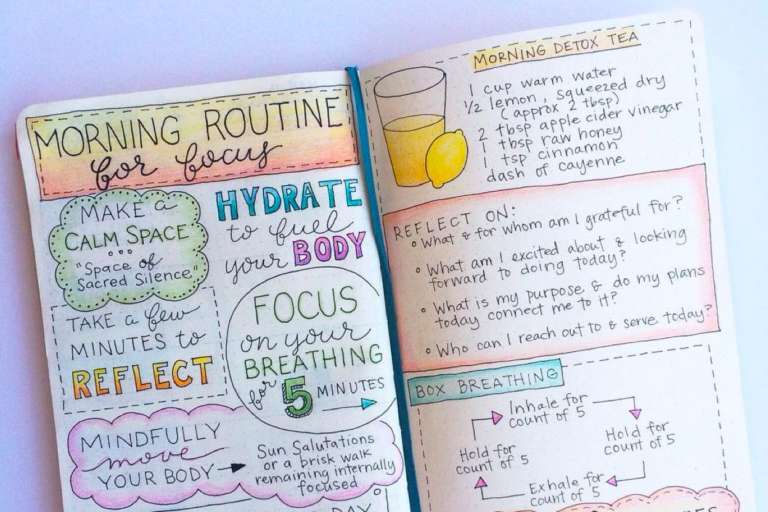 MORNING ROUTINE
for focus
MAKE a
CALM SPACE
"Space of
Sacred Silence"
HYDRATE
to fuel
your BODY
TAKE a few
MINUTES to
REFLECT
FOCUS
on your
BREATHING
for 5 MINUTES
MINDFULLY
move
YOUR BODY
Sun Salutations
or a brisk walk
remaining internally
focused
DAY
MORNING DETOX TEA
1 cup warm water
1/2 lemon, squeezed dry
(approx 2 tbsp)
2 tbsp apple cider vinegar
1 tbsp raw honey
1 tsp cinnamon
dash of cayenne
REFLECT ON:
• What & for whom am I grateful for?
• What am I excited about & looking
forward to doing today?
• What is my purpose & do my plans
today connect me to it?
• Who can I reach out to & serve today?
BOX BREATHING
Inhale for
count of 5
Hold for
count of 5
Hold for
count of 5
Exhale for
count of 5